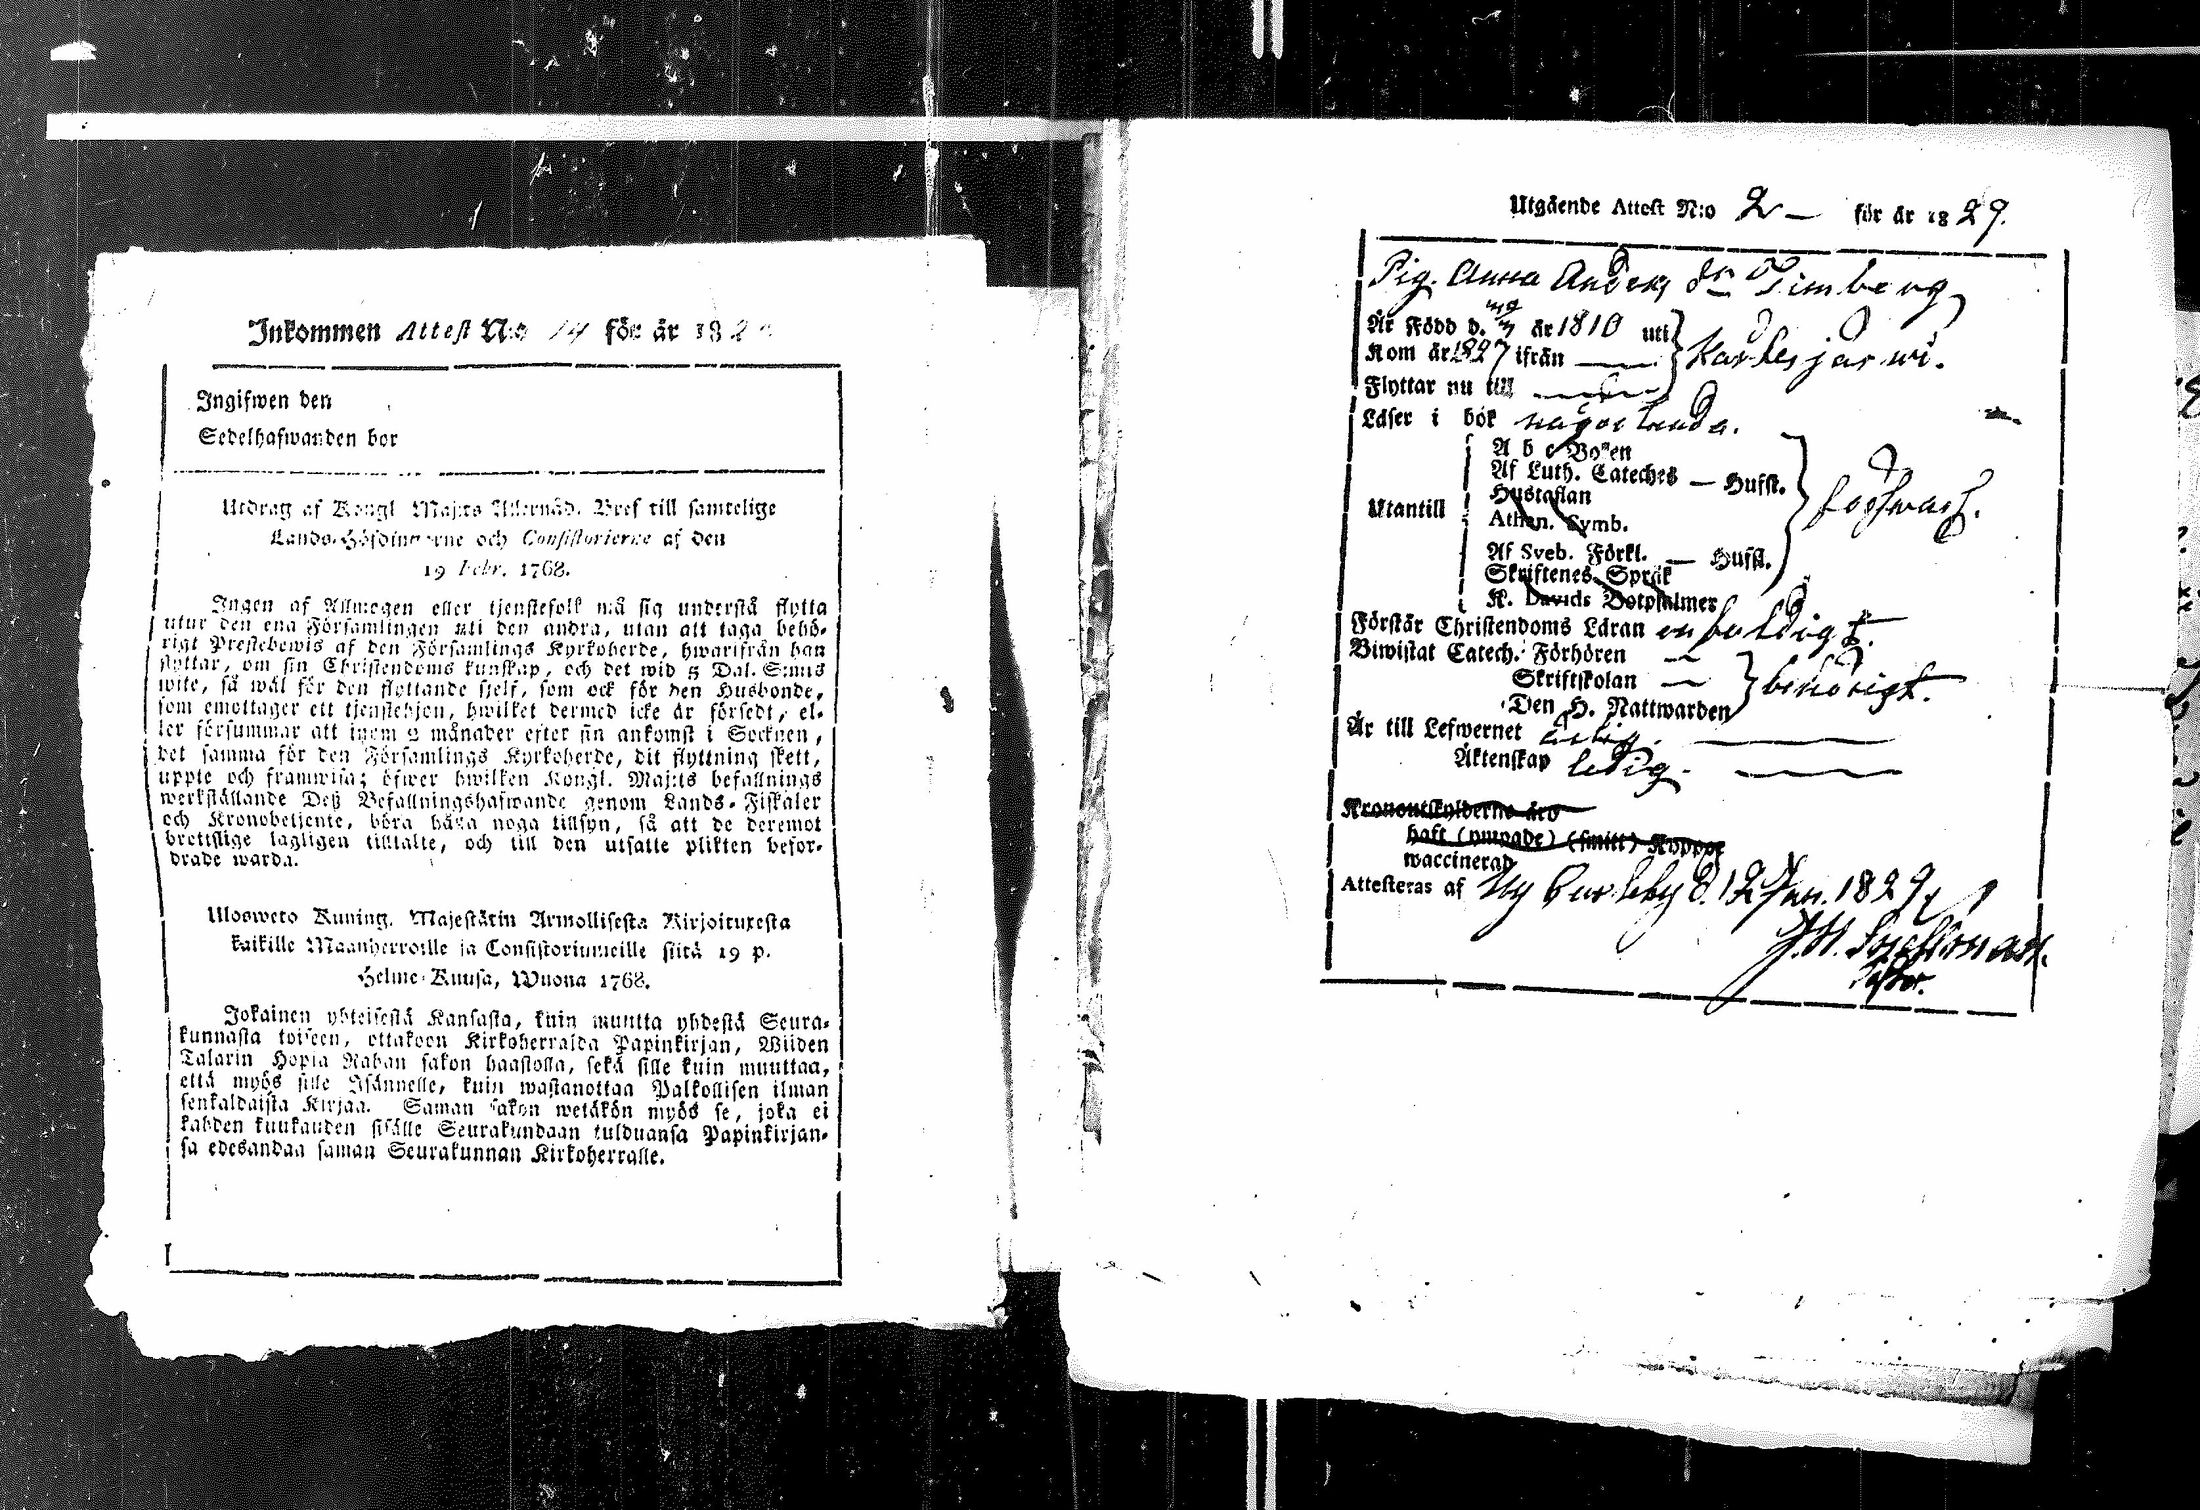 Inkommen Attest N:o 14 för år 182
Ingifwen den
Sedelhafwanden bor
Utdrag af Kongl. Maj:ts Allernåd. Bref till samtelige
Lands-Höfdingarne och Consistorierne af den
19 Febr. 1768.
Ingen af Allmogen eller tjenstefolk må sig understå flytta
utur den ena Församlingen uti den andra, utan att taga behö-
rigt Prestebewis af den Församlings Kyrkoherde, hwarifrån han
flyttar, om sin Christendoms kunskap, och det wid 5 Dal. S:mts
wite, så wäl för den flyttande sjelf, som ock för den Husbonde,
som emottager ett tjenstehjon, hwilket dermed icke är försedt, el-
ler försummar att inom 2 månader efter sin ankomst i Socknen,
det samma för den Församlings Kyrkoherde, dit flyttning skett,
uppte och framwisa; öfwer hwilken Kongl. Maj:ts befallnings
werkställande Deß Befallningshafwande genom Lands-Fiskaler
och Kronobetjente, böra hafwa noga tillsyn, så att de deremot
brottslige lagligen tilltalte, och till den utsatte plikten befor-
drade warda.
Ulosweto Kuning. Majestätin Armollisesta Kirjoituxesta
kaikille Maanherroille ja Consistoriumeille siitä 19 p.
Helme-Kuusa, Wuona 1768.
Jokainen yhteisestä Kansasta, kuin muutta yhdestä Seura-
kunnasta toiseen, ottakoon Kirkoherralda Papinkirjan, Wiiden
Talarin Hopia Rahan sakon haastolla, sekä sille kuin muuttaa,
että myös sille Isännelle, kuin wastanottaa Palkollisen ilman
senkaldaista Kirjaa. Saman sakon wetäkön myös se, joka ei
kahden kuukauden sisälle Seurakundaan tulduansa Papinkirjan-
sa edesandaa saman Seurakunnan Kirkoherralle.
Utgående Attest N:o 2 — för år 1829.
Pig. Anna Anders dr Timberg
Är Född d. år 1810 uti
Kom år 1827 ifrån — Kardesjarwi.
Flyttar nu till —
Läser i bok något
A b c Boken
Af Luth. Cateches — Hufst.
Hustaflan
Utantill
Athan. Symb.
Af Sveb. Förkl. — Hufst.
Skriftenes Språk
K. Davids Botpsalmer
Förstår Christendoms Läran enfaldigt.
Biwistat Catech. Förhören —
Skriftskolan — behörigt.
Den H. Nattwarden
Är till Lefwernet ärlig. —
Äktenskap ledig. —
Kronoutskylderne äro
haft (ympade) (smitt) Koppor
waccinerad
Attesteras af Ny Carleby d. 12 Jan. 1829,